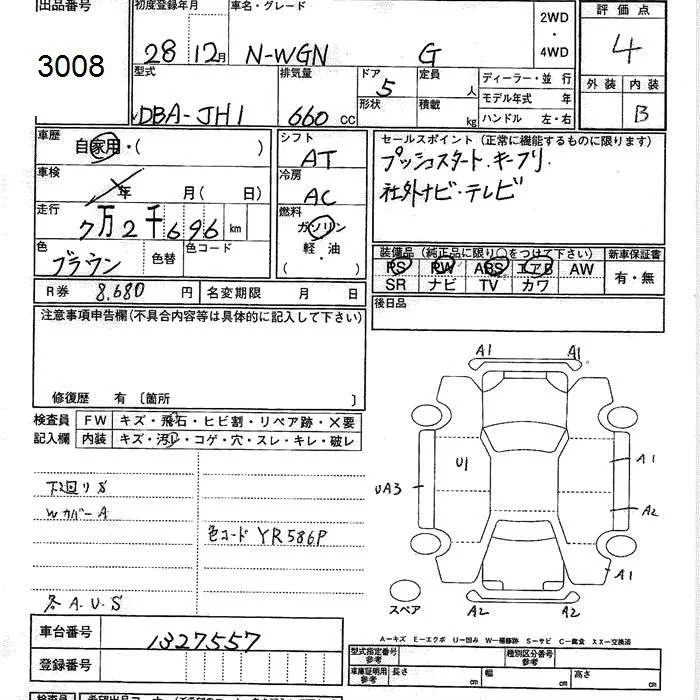 出品番号
3008
初度登録年月
28 12月
車名・グレード
N-WGN G
2WD
・
4WD
評価点
4
外装 内装
B
型式
DBA-JH1
排気量
660 cc
ドア 5
形状
定員 人
積載 kg
ディーラー・並行
モデル年式 年
ハンドル 左・右
車歴
自家用・( )
車検
年 月(日)
走行
7万2千696 km
色
ブラウン
色替
色コード
シフト
AT
冷房
AC
燃料
ガソリン
軽・油
( )
セールスポイント (正常に機能するものに限ります)
プッシュスタート・キーフリ
社外ナビ・テレビ
装備品 (純正品に限り○をつけて下さい)
PS PW ABS エアB AW
SR ナビ TV カワ
新車保証書
有・無
後日品
R券 8,680 円
名変期限 月 日
注意事項申告欄(不具合内容等は具体的に記入して下さい)
修復歴 有 〔箇所 〕
検査員
記入欄
FW キズ・飛石・ヒビ割・リペア跡・×要
内装 キズ・汚れ・コゲ・穴・スレ・キレ・破レ
下廻りS
WカバーA
色コード YR586P
各A.U.S
A1 A1
U1
UA3
A1
A2
A1
A2 A2
スペア
A-キズ E-エクボ U-凹み W-補修跡 S-サビ C-腐食 XX-交換済
車台番号
1327557
登録番号
型式指定番号
参考
種別区分番号
参考
車庫証明用
参考
長さ cm
幅 cm
高さ cm
検査員